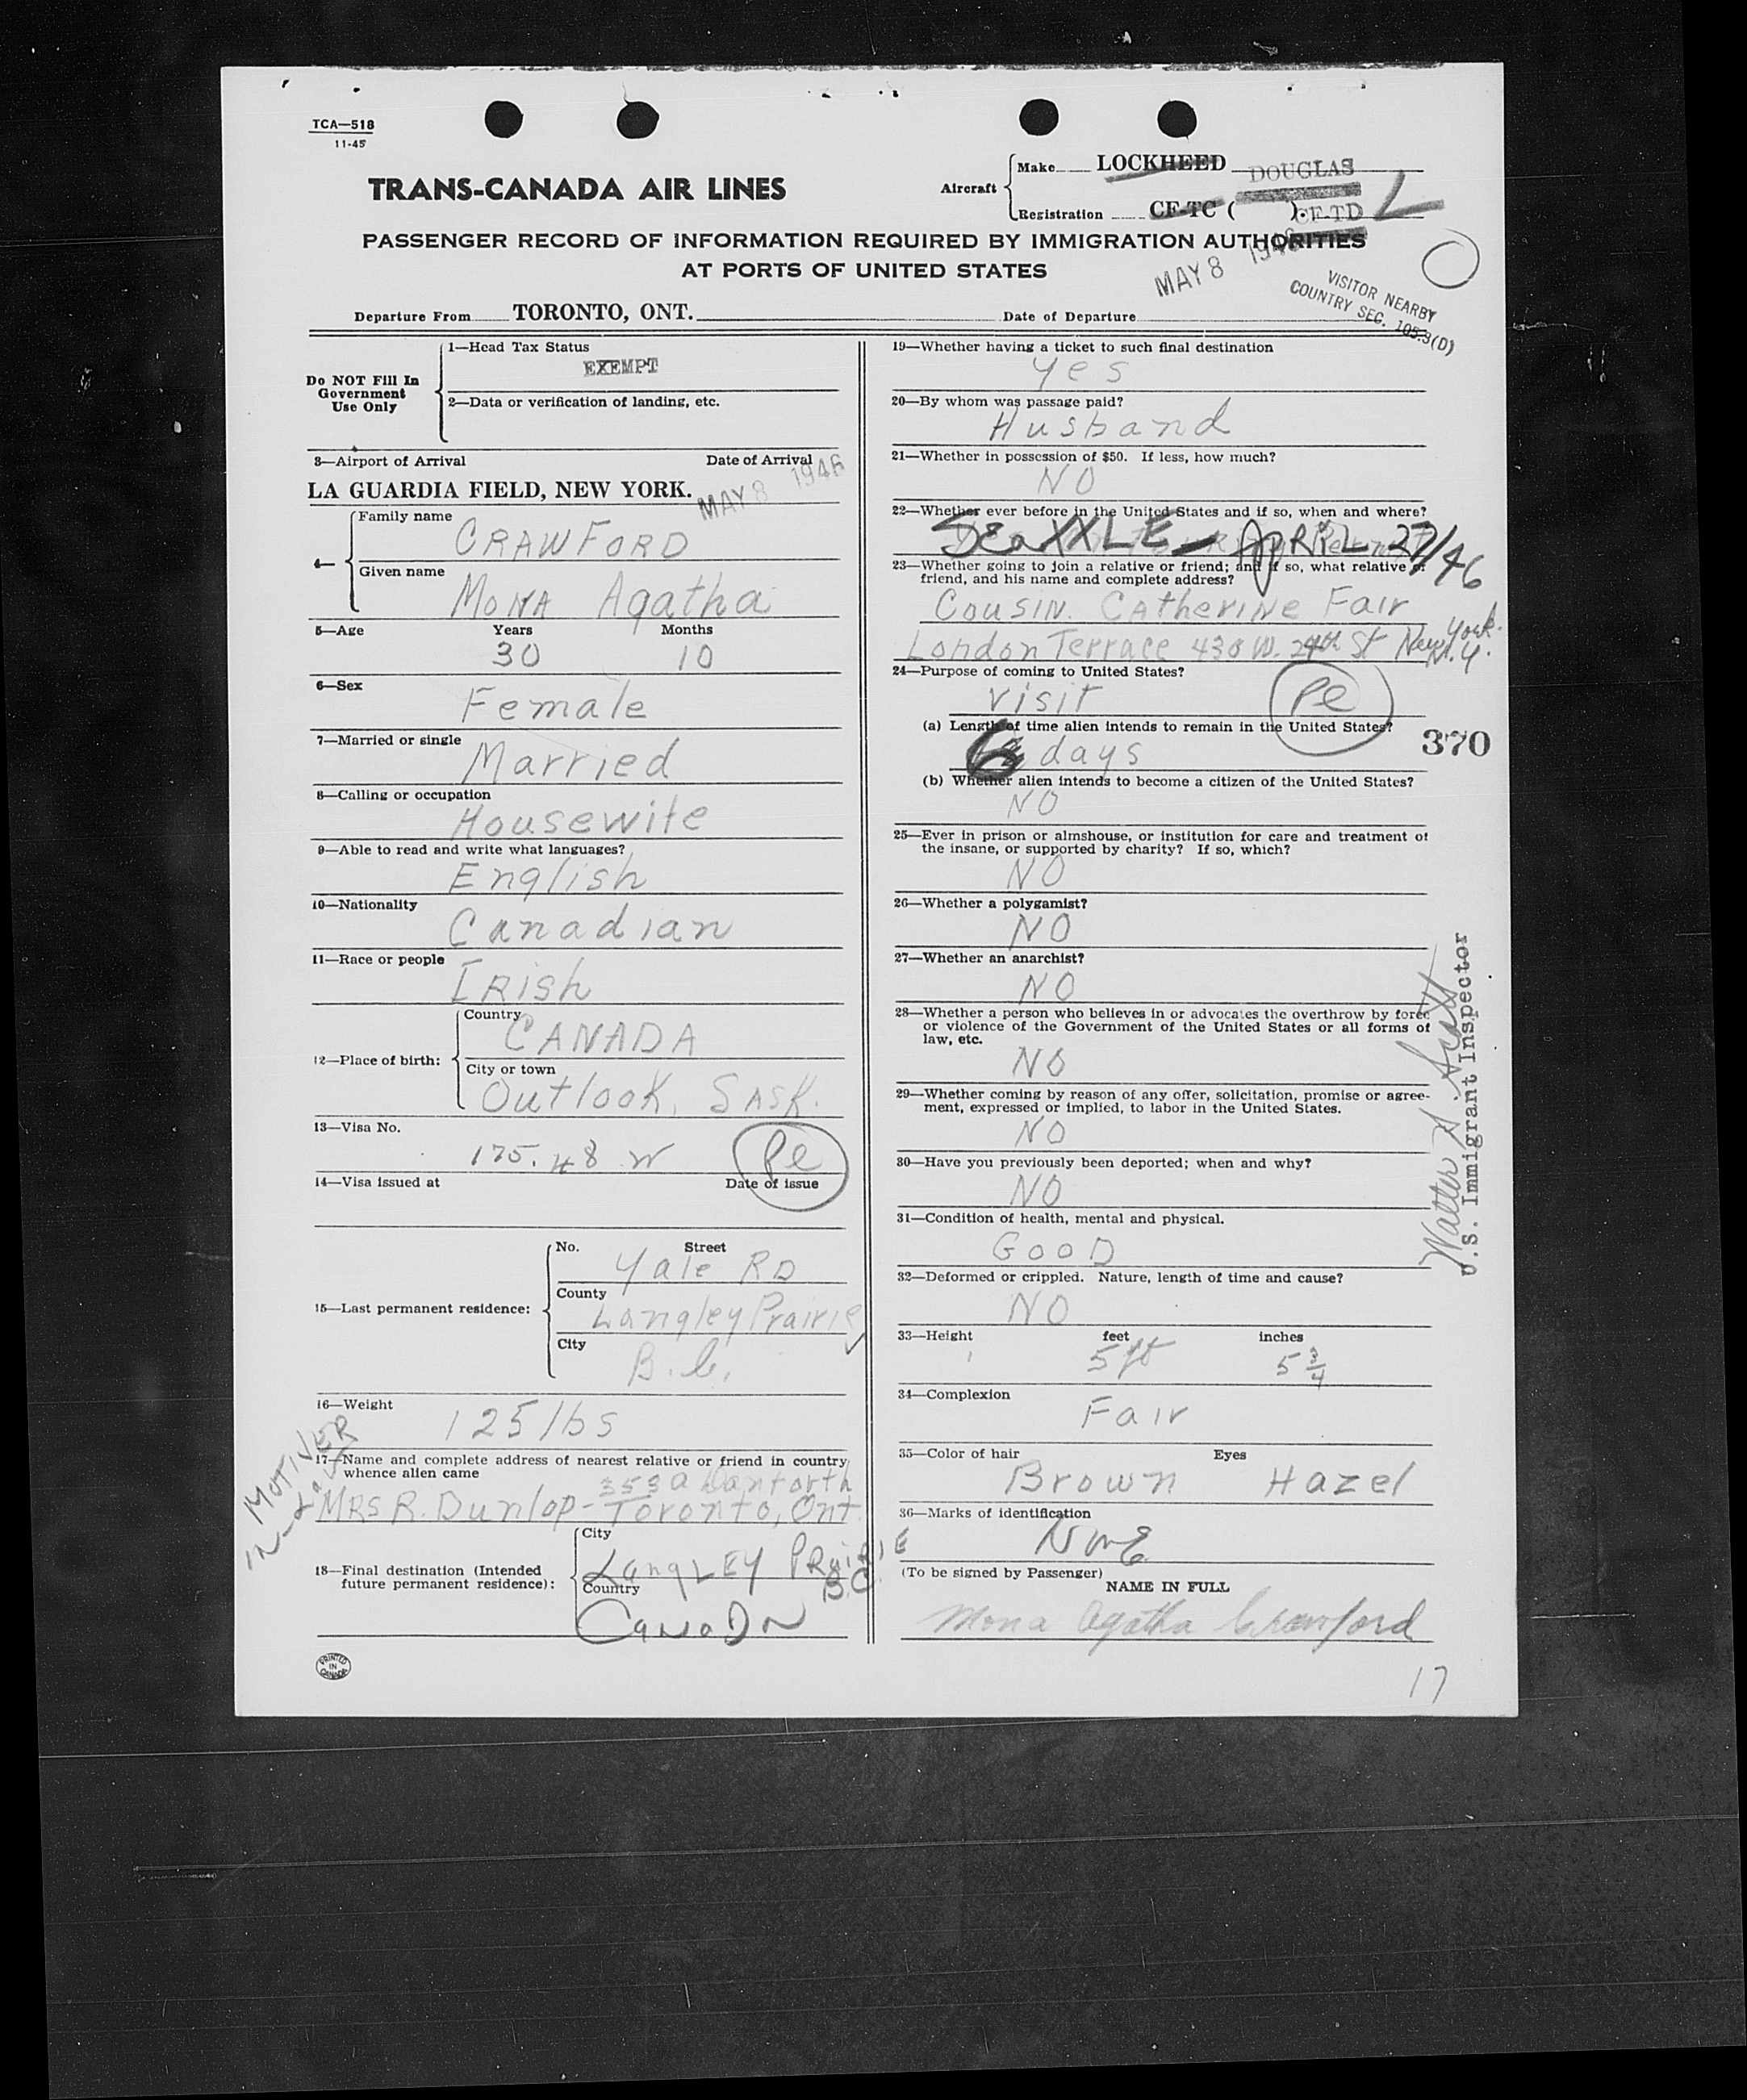 TCA—518
11-45
TRANS-CANADA AIR LINES
Aircraft
Make LOCKHEED DOUGLAS
Registration CF-TC ( ). CF-TD L
PASSENGER RECORD OF INFORMATION REQUIRED BY IMMIGRATION AUTHORITIES
AT PORTS OF UNITED STATES
MAY 8 1946
VISITOR NEARBY
COUNTRY SEC. 105.3(D)
Departure From TORONTO, ONT. Date of Departure
Do NOT Fill In
Government
Use Only
1—Head Tax Status
EXEMPT
2—Data or verification of landing, etc.
3—Airport of Arrival Date of Arrival
LA GUARDIA FIELD, NEW YORK. MAY 8 1946
4—
Family name
CRAWFORD
Given name
MONA Agatha
5—Age Years Months
30 10
6—Sex
Female
7—Married or single
Married
8—Calling or occupation
Housewife
9—Able to read and write what languages?
English
10—Nationality
Canadian
11—Race or people
IRish
12—Place of birth:
Country
CANADA
City or town
Outlook, SASK.
13—Visa No.
175.48 Pe
14—Visa issued at Date of issue
15—Last permanent residence:
No. Street
Yale RD
County
Langley Prairie
City
B.C.
16—Weight
125 lbs
MOTHER
IN-LAW
17—Name and complete address of nearest relative or friend in country
whence alien came
353a Danforth
MRS R. Dunlop - Toronto, Ont.
18—Final destination (Intended
future permanent residence):
City
LangLEY PRaiRIE
B.C.
Country
CANADA
PRINTED
IN
CANADA
19—Whether having a ticket to such final destination
Yes
20—By whom was passage paid?
Husband
21—Whether in possession of $50. If less, how much?
NO
22—Whether ever before in the United States and if so, when and where?
SeaXXLE - ApRiL 27/46
23—Whether going to join a relative or friend; and if so, what relative or
friend, and his name and complete address?
Cousin. CAtherINe Fair
London Terrace 430 W. 24th St New York.
N.Y.
24—Purpose of coming to United States?
Visit Pe
(a) Length of time alien intends to remain in the United States?
6 days
370
(b) Whether alien intends to become a citizen of the United States?
NO
25—Ever in prison or almshouse, or institution for care and treatment of
the insane, or supported by charity? If so, which?
NO
26—Whether a polygamist?
NO
27—Whether an anarchist?
NO
28—Whether a person who believes in or advocates the overthrow by force
or violence of the Government of the United States or all forms of
law, etc.
NO
29—Whether coming by reason of any offer, solicitation, promise or agree-
ment, expressed or implied, to labor in the United States.
NO
30—Have you previously been deported; when and why?
NO
31—Condition of health, mental and physical.
GOOD
32—Deformed or crippled. Nature, length of time and cause?
NO
33—Height feet inches
5 ft 5 3/4
34—Complexion
Fair
35—Color of hair Eyes
Brown Hazel
36—Marks of identification
NonE
(To be signed by Passenger)
NAME IN FULL
Mona Agatha Crawford
Walter
U.S. Immigrant Inspector
17